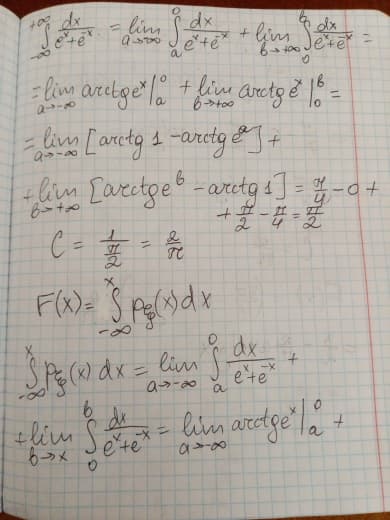 +∞∫-∞ dx/(eˣ+e⁻ˣ) = lim a→-∞ ∫ₐ⁰ dx/(eˣ+e⁻ˣ) + lim b→+∞ ∫₀ᵇ dx/(eˣ+e⁻ˣ) =
= lim a→-∞ arctgeˣ|ₐ⁰ + lim b→+∞ arctg eˣ|₀ᵇ =
= lim a→-∞ [arctg 1 - arctg eᵃ] +
+ lim b→+∞ [arctgeᵇ - arctg 1] = π/4 - 0 +
+ π/2 - π/4 = π/2
C = 1/(π/2) = 2/π
F(x) = ∫-∞ˣ pξ(x)dx
∫-∞ˣ pξ(x) dx = lim a→-∞ ∫ₐ⁰ dx/(eˣ+e⁻ˣ) +
+ lim b→x ∫₀ᵇ dx/(eˣ+e⁻ˣ) = lim a→-∞ arctgeˣ|ₐ⁰ +